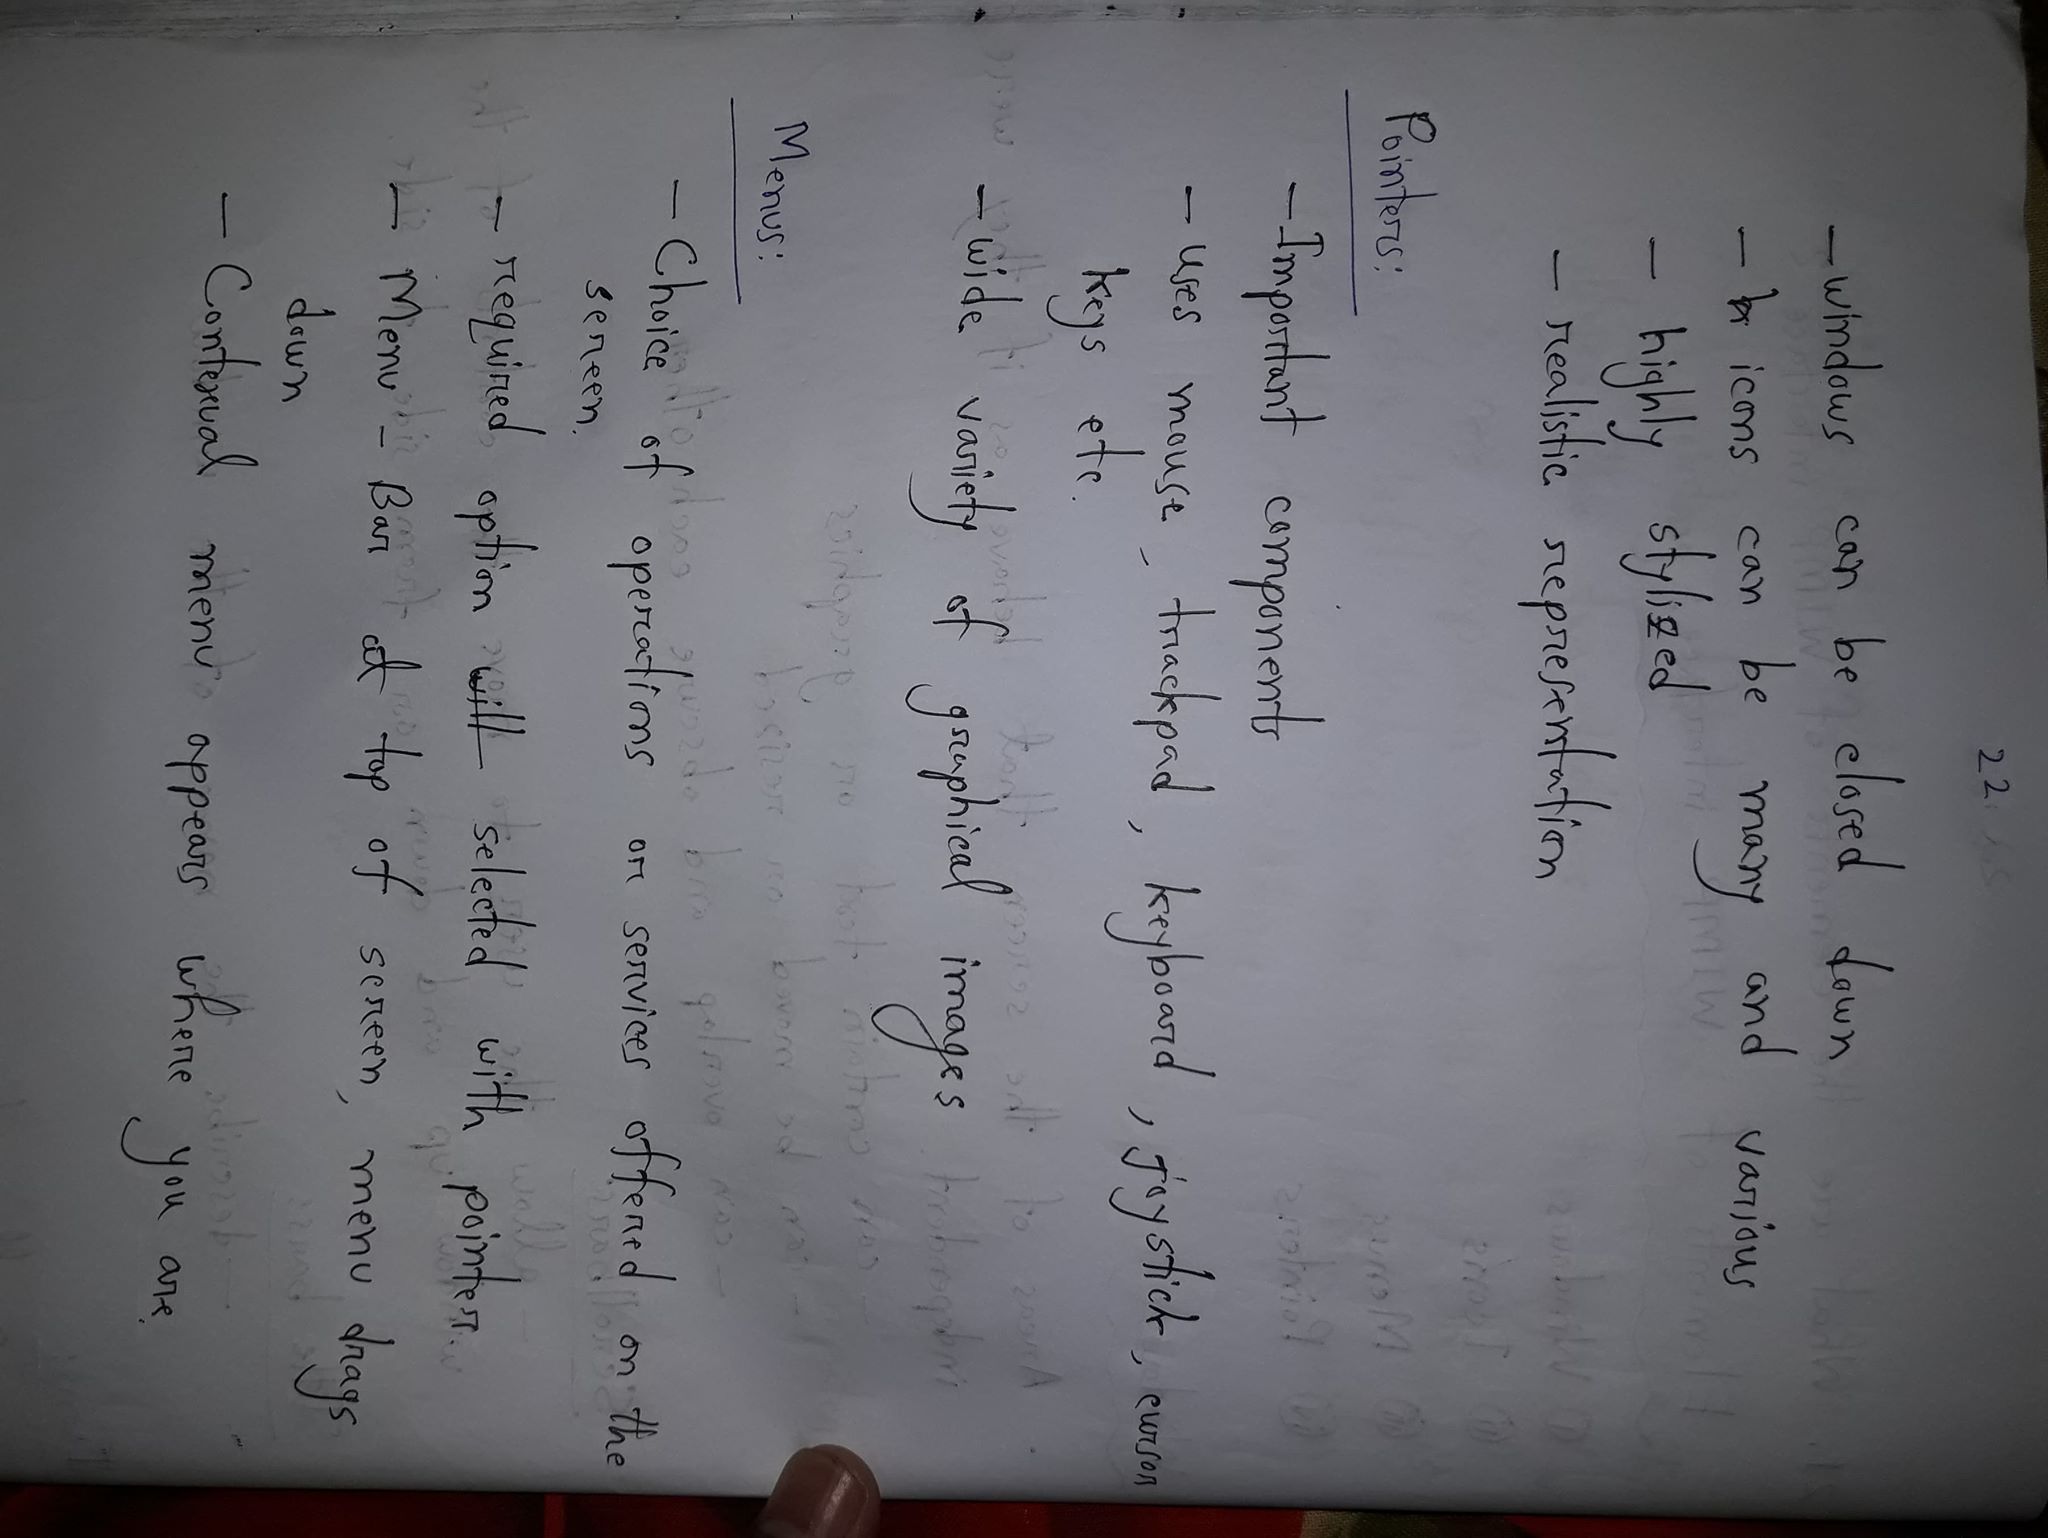 22
- windows can be closed down
- icons can be many and various
- highly stylized
- realistic representation
Pointers:
- Important components
- uses mouse, trackpad, keyboard, joystick, cursor
keys etc.
- wide variety of graphical images
Menus:
- Choice of operations or services offered on the
screen.
- required option will selected with pointer.
- Menu - Bar at top of screen, menu drags
down
- Contexual menu appears where you are.